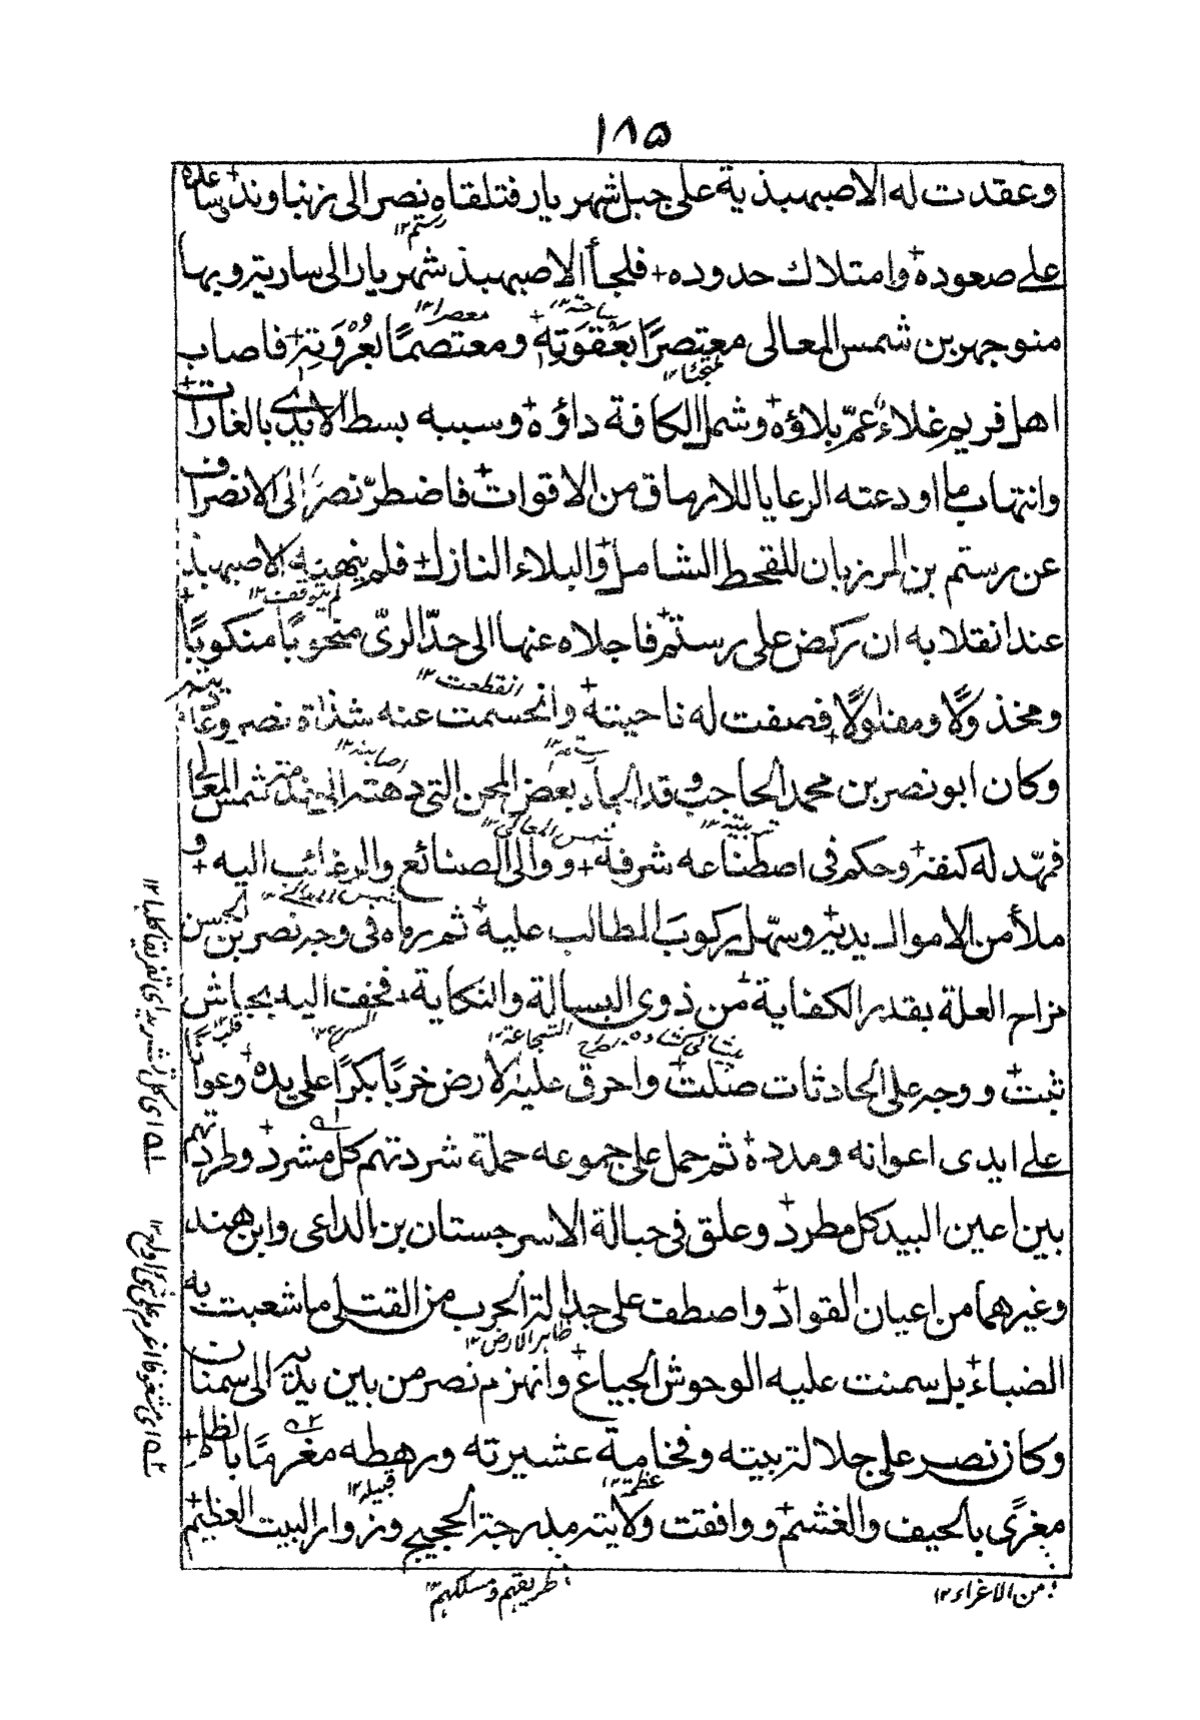 ١٨٥
وعقدت له الاصبهبذية على جبل شهريار فتلقاه نصر الى زنباوند ساعده
رستم ١٢
على صعوده وامتلاك حدوده فلجأ الاصبهبذ شهريار الى سارية وبها
منوجهر بن شمس المعالى معتصرًا بعَقْوَتِه ومعتصمًا بعُروَتِه فاصاب
اهل فريم غلاءٌ عمّ بلاؤه وشمل الكافة داؤه وسببه بسط الايدى بالغارات
وانتهاب ما اودعته الرعايا للارماق من الاقوات فاضطرّ نصر الى الانصراف
عن رستم بن المرزبان للقحط الشامل والبلاء النازل فلم ينهنه الاصبهبذ
لم يتوقف ١٢
عند انقلابه ان ركض على رستم فاجلاه عنها الى حدّ الرىّ منخوبًا منكوبًا
ومخذولًا ومفلولًا فصفت له ناحيته وانحسمت عنه شذاة نصر وعاديته
انقطعت ١٢
وكان ابو نصر بن محمد الحاجب قد الجأه بعض المحن التى دهته الى خدمة شمس المعالى
اصابته ١٢
فمهّد له كنفه وحكم فى اصطناعه شرفه ووالى الصنائع والرغائب اليه و
تربيته ١٢
شمس المعالى ١٢
ملأ من الاموال يديه وسهّل ركوبَ المطالب عليه ثم رماه فى وجه نصر بن الحسن
مزاح العلة بقدر الكفاية من ذوى البسالة والنكاية فخف اليه بجياش
الشجاعة ١٢
ثبت ووجه على الحادثات صلت واحرق عليه الارض خربًا بكرًا على يده وعوانًا
على ايدى اعوانه ومدده ثم حمل على جموعه حملة شردتهم كل مشرد وطردتهم
بين اعين البيد كل مطرد وعلق فى حبالة الاسر جستان بن الداعى وابن هند
وغيرهما من اعيان القواد واصطف على جدالة الحرب من القتلى ما شعبت به
ظاهر الارض ١٢
الضباء بل سمنت عليه الوحوش الجياع وانهزم نصر من بين يديه الى سمنان
وكان نصر على جلالة بيته وفخامة عشيرته ورهطه مغرمًا بالظلم
عظمة ١٢
قبيله ١٢
مغرًى بالحيف والغشم ووافقت ولايته مدرجة الحجيج وزوار البيت العظيم
من الاغراء ١٢
طريقهم ومسلكهم ١٢